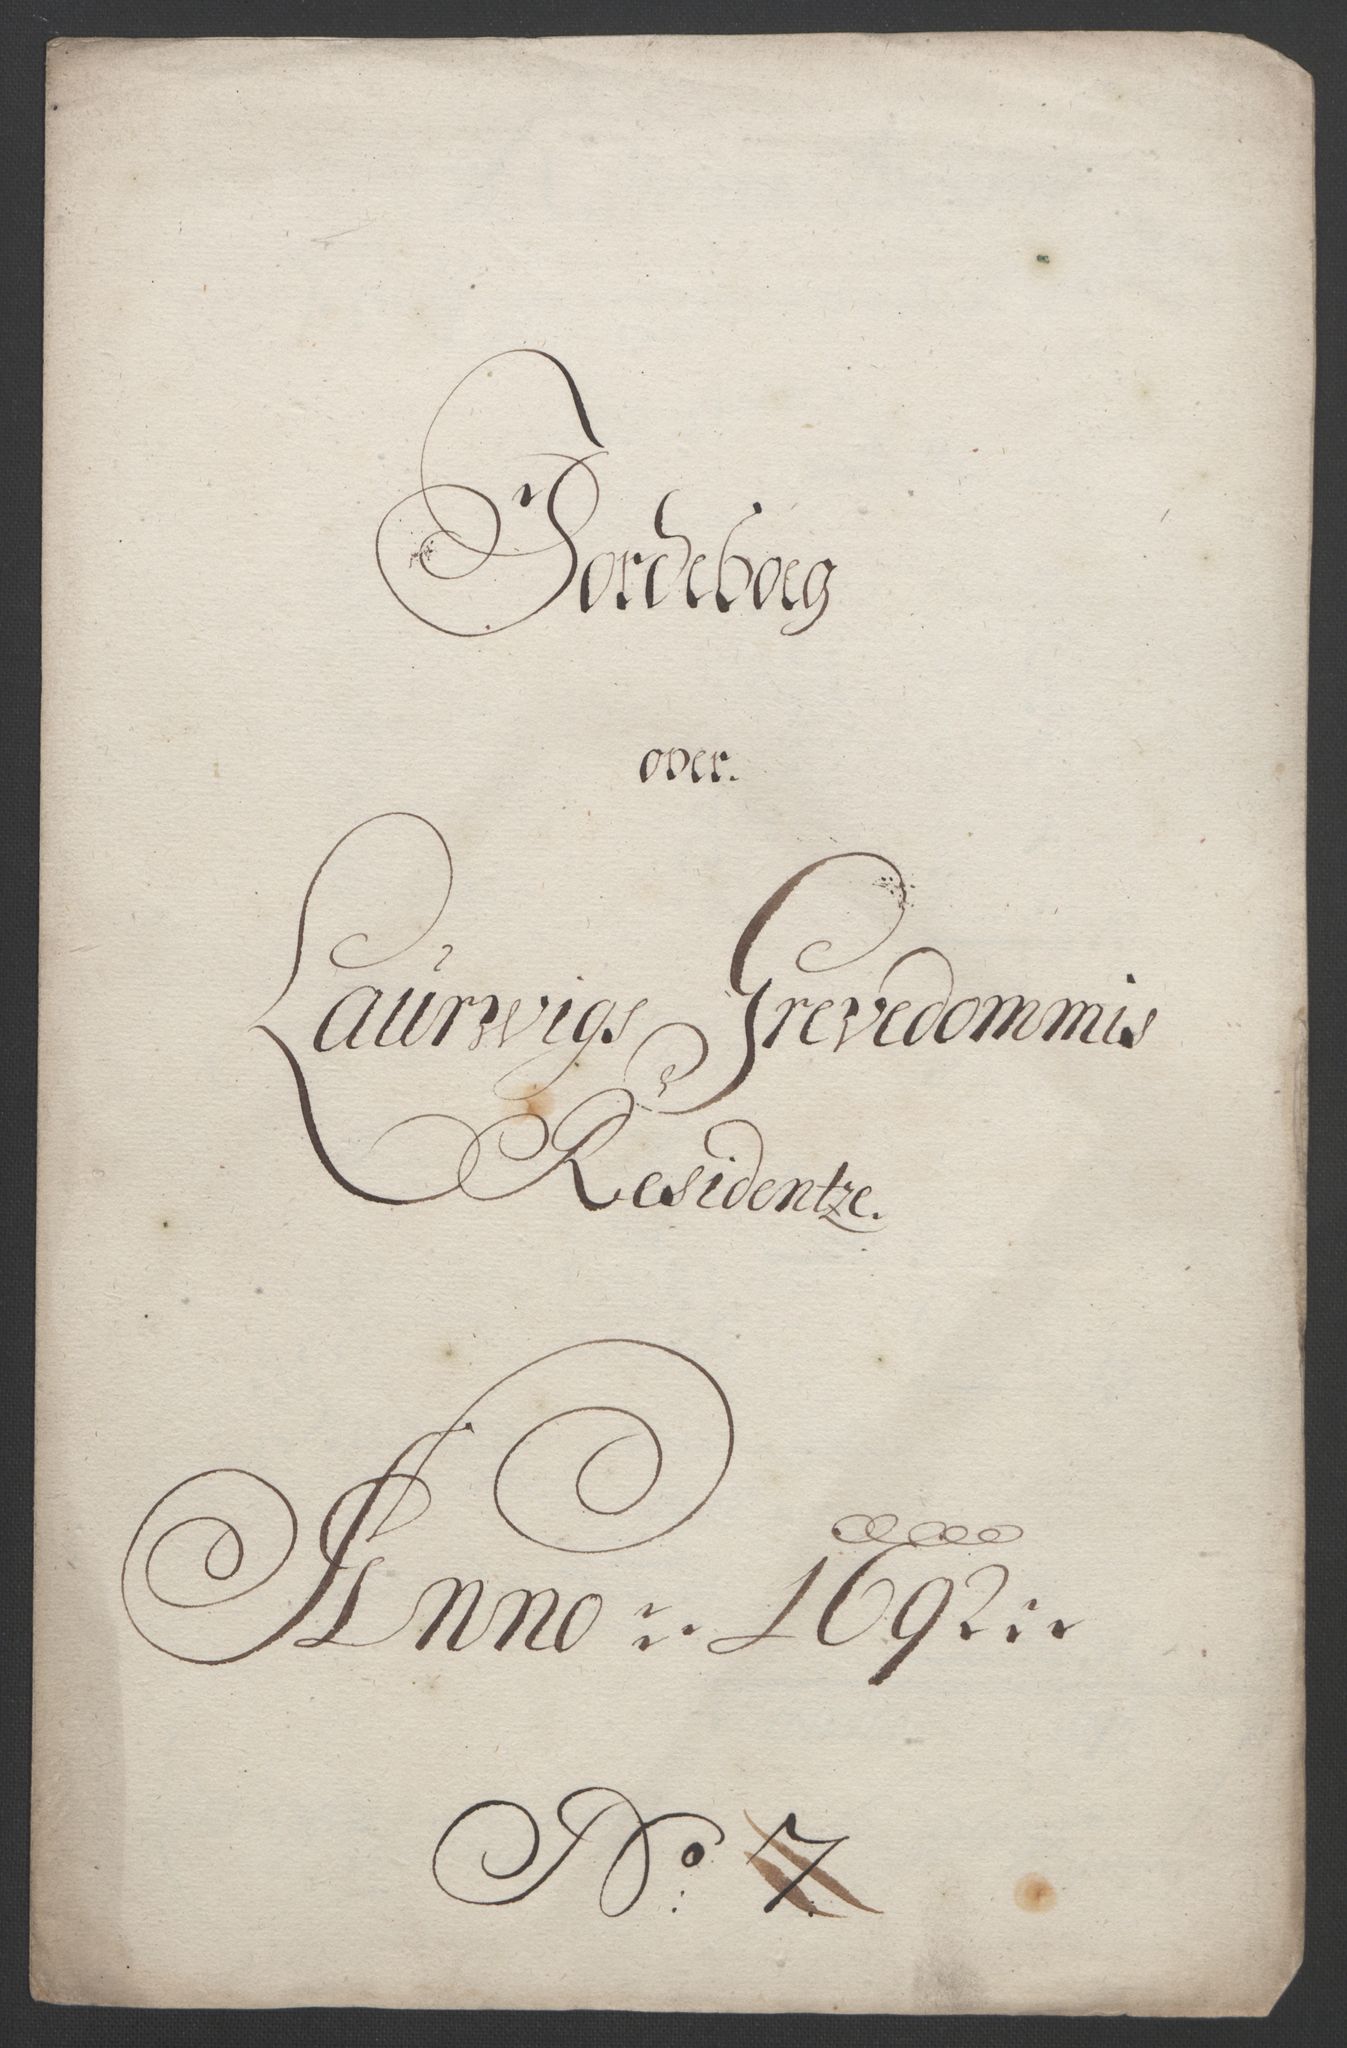 Jordeboeg
over.
Laurwigs Grevedommis
Residentze.
Anno 1692
No: 7.